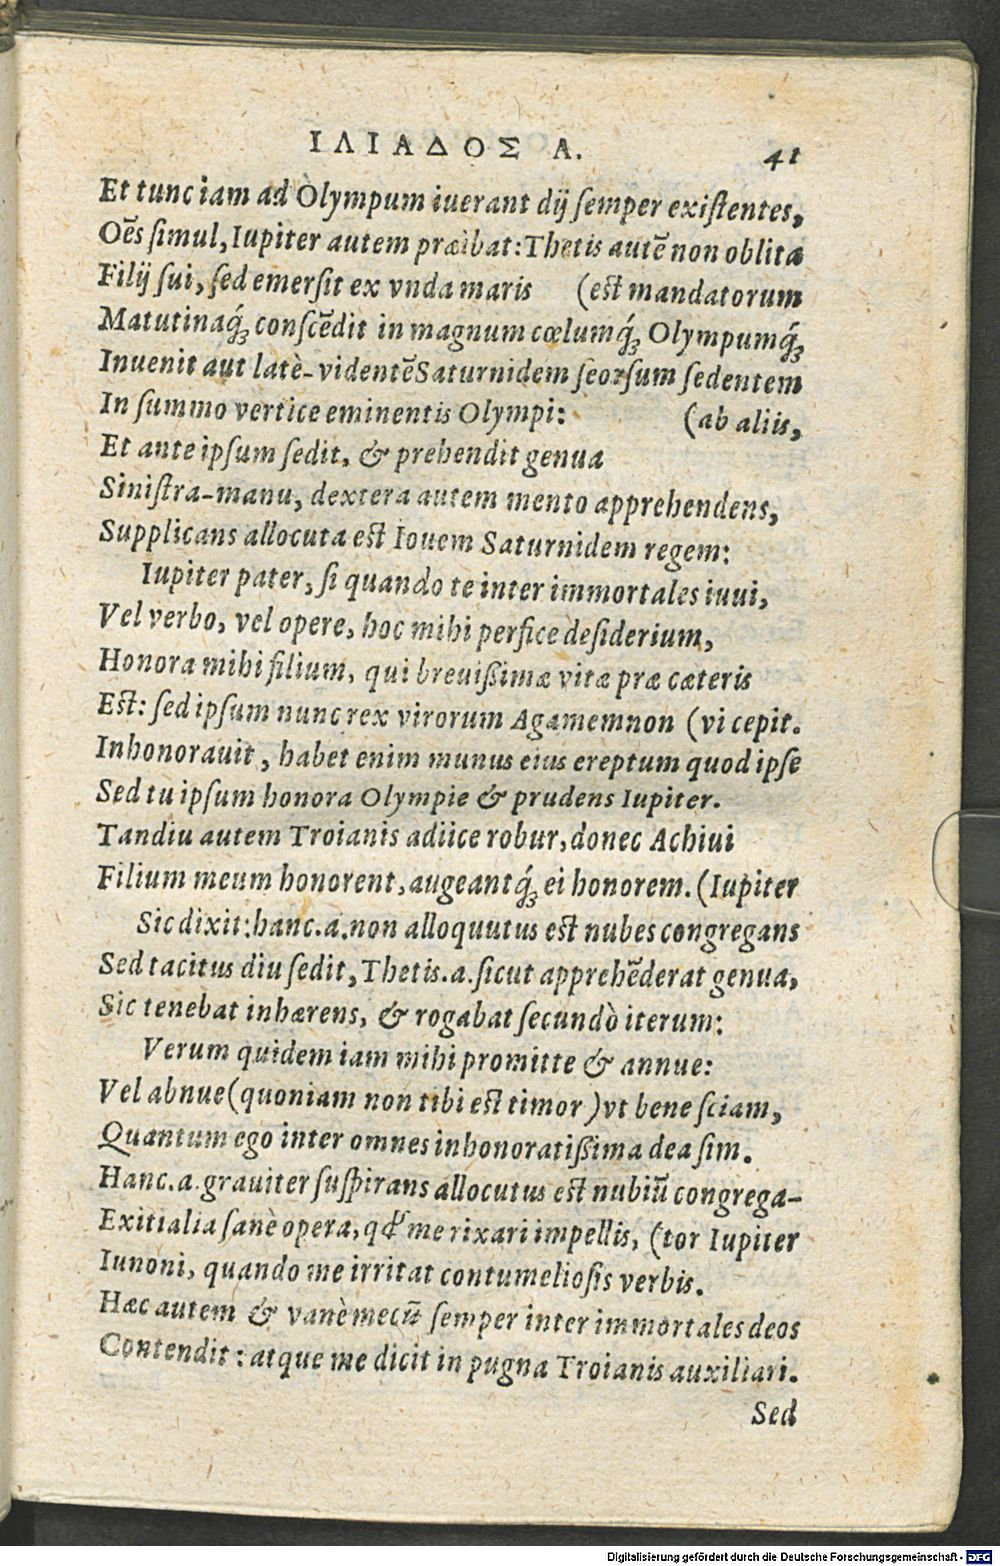 ΙΛΙΑΔΟΣ Α. 41
Et tunc iam ad Olympum iuerant dij ſemper exiſtentes,
Oẽs ſimul, Iupiter autem præibat: Thetis autẽ non oblita
Filij ſui, ſed emerſit ex vnda maris (eſt mandatorum
Matutinaq́ꝫ conſcẽdit in magnum cœlumq́ꝫ Olympumq́ꝫ
Inuenit aut latè-videntẽ Saturnidem ſeorſum ſedentem
In ſummo vertice eminentis Olympi: (ab aliis,
Et ante ipſum ſedit, & prehendit genua
Siniſtra-manu, dextera autem mento apprehendens,
Supplicans allocuta eſt Iouem Saturnidem regem:
Iupiter pater, ſi quando te inter immortales iuui,
Vel verbo, vel opere, hoc mihi perfice deſiderium,
Honora mihi filium, qui breuißimæ vitæ præ cæteris
Eſt: ſed ipſum nunc rex virorum Agamemnon (vi cepit.
Inhonorauit, habet enim munus eius ereptum quod ipſe
Sed tu ipſum honora Olympie & prudens Iupiter.
Tandiu autem Troianis adiice robur, donec Achiui
Filium meum honorent, augeantq́ꝫ ei honorem. (Iupiter
Sic dixit: hanc .a. non alloquutus eſt nubes congregans
Sed tacitus diu ſedit, Thetis .a. ſicut apprehẽderat genua,
Sic tenebat inhærens, & rogabat ſecundò iterum:
Verum quidem iam mihi promitte & annue:
Vel abnue (quoniam non tibi eſt timor) vt bene ſciam,
Quantum ego inter omnes inhonoratißima dea ſim.
Hanc .a. grauiter ſuſpirans allocutus eſt nubiũ congrega-
Exitialia ſanè opera, qđ me rixari impellis, (tor Iupiter
Iunoni, quando me irritat contumelioſis verbis.
Hæc autem & vanè mecũ ſemper inter immortales deos
Contendit: atque me dicit in pugna Troianis auxiliari.
Sed
Digitalisierung gefördert durch die Deutsche Forschungsgemeinschaft - DFG